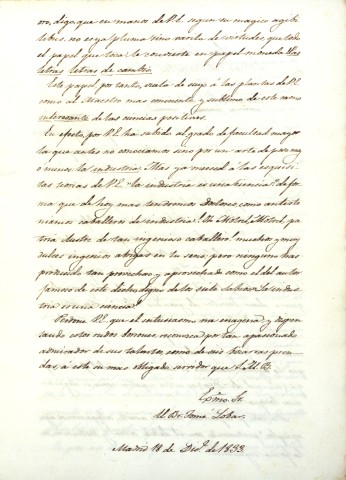 oro, digo, que en manos de V.E. segun su magico agibi
libis, no es ya pluma sino varita de virtudes, que todo
el papel que toca lo convierte en papel moneda. Las
letras letras de cambio.
Este papel, por tanto, vuela de suyo á las plantas de V.E.
como al Maestro mas eminente y sublime de este ramo
interesante de las ciencias positivas.
En efecto, por V.E. ha subido al grado de facultad mayor
la que antes no conociamos sino por un arte de
o menos la industria. Mas ya merced á las esquisitas
teorias de V.E. "la industria es una ciencia" de for
ma que de hoy mas tendremos Doctores, como antes te
niamos caballeros de industria. Oh Motril, Motril, pa
tria ilustre de tan ingenioso caballero! muchos y muy
dulces ingenios abrigas en tu seno; pero ninguno has
producido tan provechoso y aprovechado como el del autor
famoso de este dicho digno de los siete sabios: la indus
tria es una ciencia!
Perdone V.E. que el entusiasmo me enagena; y dispen
sando estos rudos borrones reconozca por tan apasionado
admirador de sus talentos, como de sus bizarras pren
das, á este su mas obligado servidor que S.M.B.
Exmo. Sr.
El Dr. Tomé Lobar.
Madrid 18 de Dbre. de 1853.